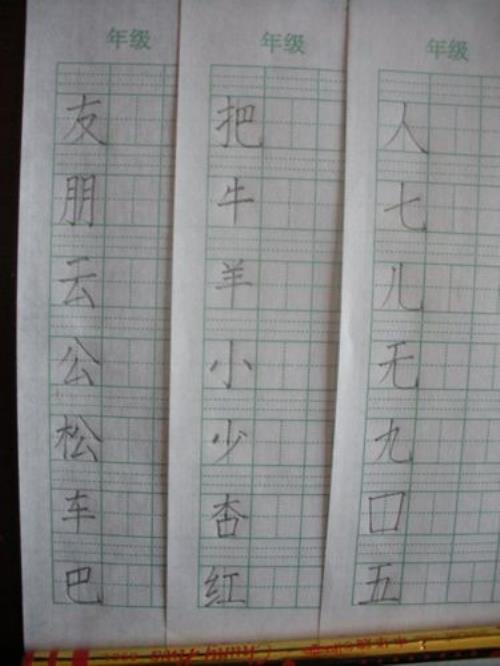 年级 年级 年级
友 把 人
朋 牛 七
云 羊 儿
公 小 无
松 少 九
车 杏 口
巴 红 五